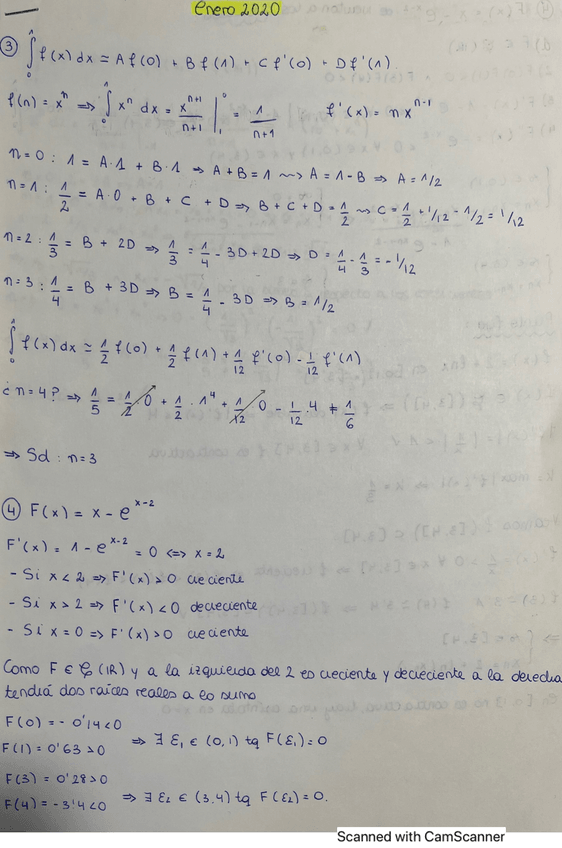 Enero 2020
③ ∫₀¹ f(x) dx ≃ A f(0) + B f(1) + C f'(0) + D f'(1)
f(n) = xⁿ ⇒ ∫₀¹ xⁿ dx = xⁿ⁺¹/n+1 |₁⁰ = 1/n+1 f'(x) = n xⁿ⁻¹
n=0 : 1 = A·1 + B·1 ⇒ A+B=1 ⇝ A=1-B ⇒ A=1/2
n=1 : 1/2 = A·0 + B + C + D ⇒ B+C+D = 1/2 ⇝ C = 1/2 + 1/12 - 1/2 = 1/12
n=2 : 1/3 = B + 2D ⇒ 1/3 = 1/4 - 3D + 2D ⇒ D = 1/4 - 1/3 = -1/12
n=3 : 1/4 = B + 3D ⇒ B = 1/4 - 3D ⇒ B = 1/2
∫₀¹ f(x) dx ≃ 1/2 f(0) + 1/2 f(1) + 1/12 f'(0) - 1/12 f'(1)
¿n=4? ⇒ 1/5 = 1/2·0 + 1/2·1⁴ + 1/12·0 - 1/12·4 ≠ 1/6
⇒ Sol : n=3
④ F(x) = x - eˣ⁻²
F'(x) = 1 - eˣ⁻² = 0 ⇔ x=2
- Si x<2 ⇒ F'(x) > 0 creciente
- Si x>2 ⇒ F'(x) < 0 decreciente
- Si x=0 ⇒ F'(x) > 0 creciente
Como F ∈ C(ℝ) y a la izquierda del 2 es creciente y decreciente a la derecha
tendrá dos raíces reales a lo sumo
F(0) = - 0'14 < 0
F(1) = 0'63 > 0 ⇒ ∃ ξ₁ ∈ (0,1) tq F(ξ₁) = 0
F(3) = 0'28 > 0
F(4) = -3'4 < 0 ⇒ ∃ ξ₂ ∈ (3,4) tq F(ξ₂) = 0.
Scanned with CamScanner